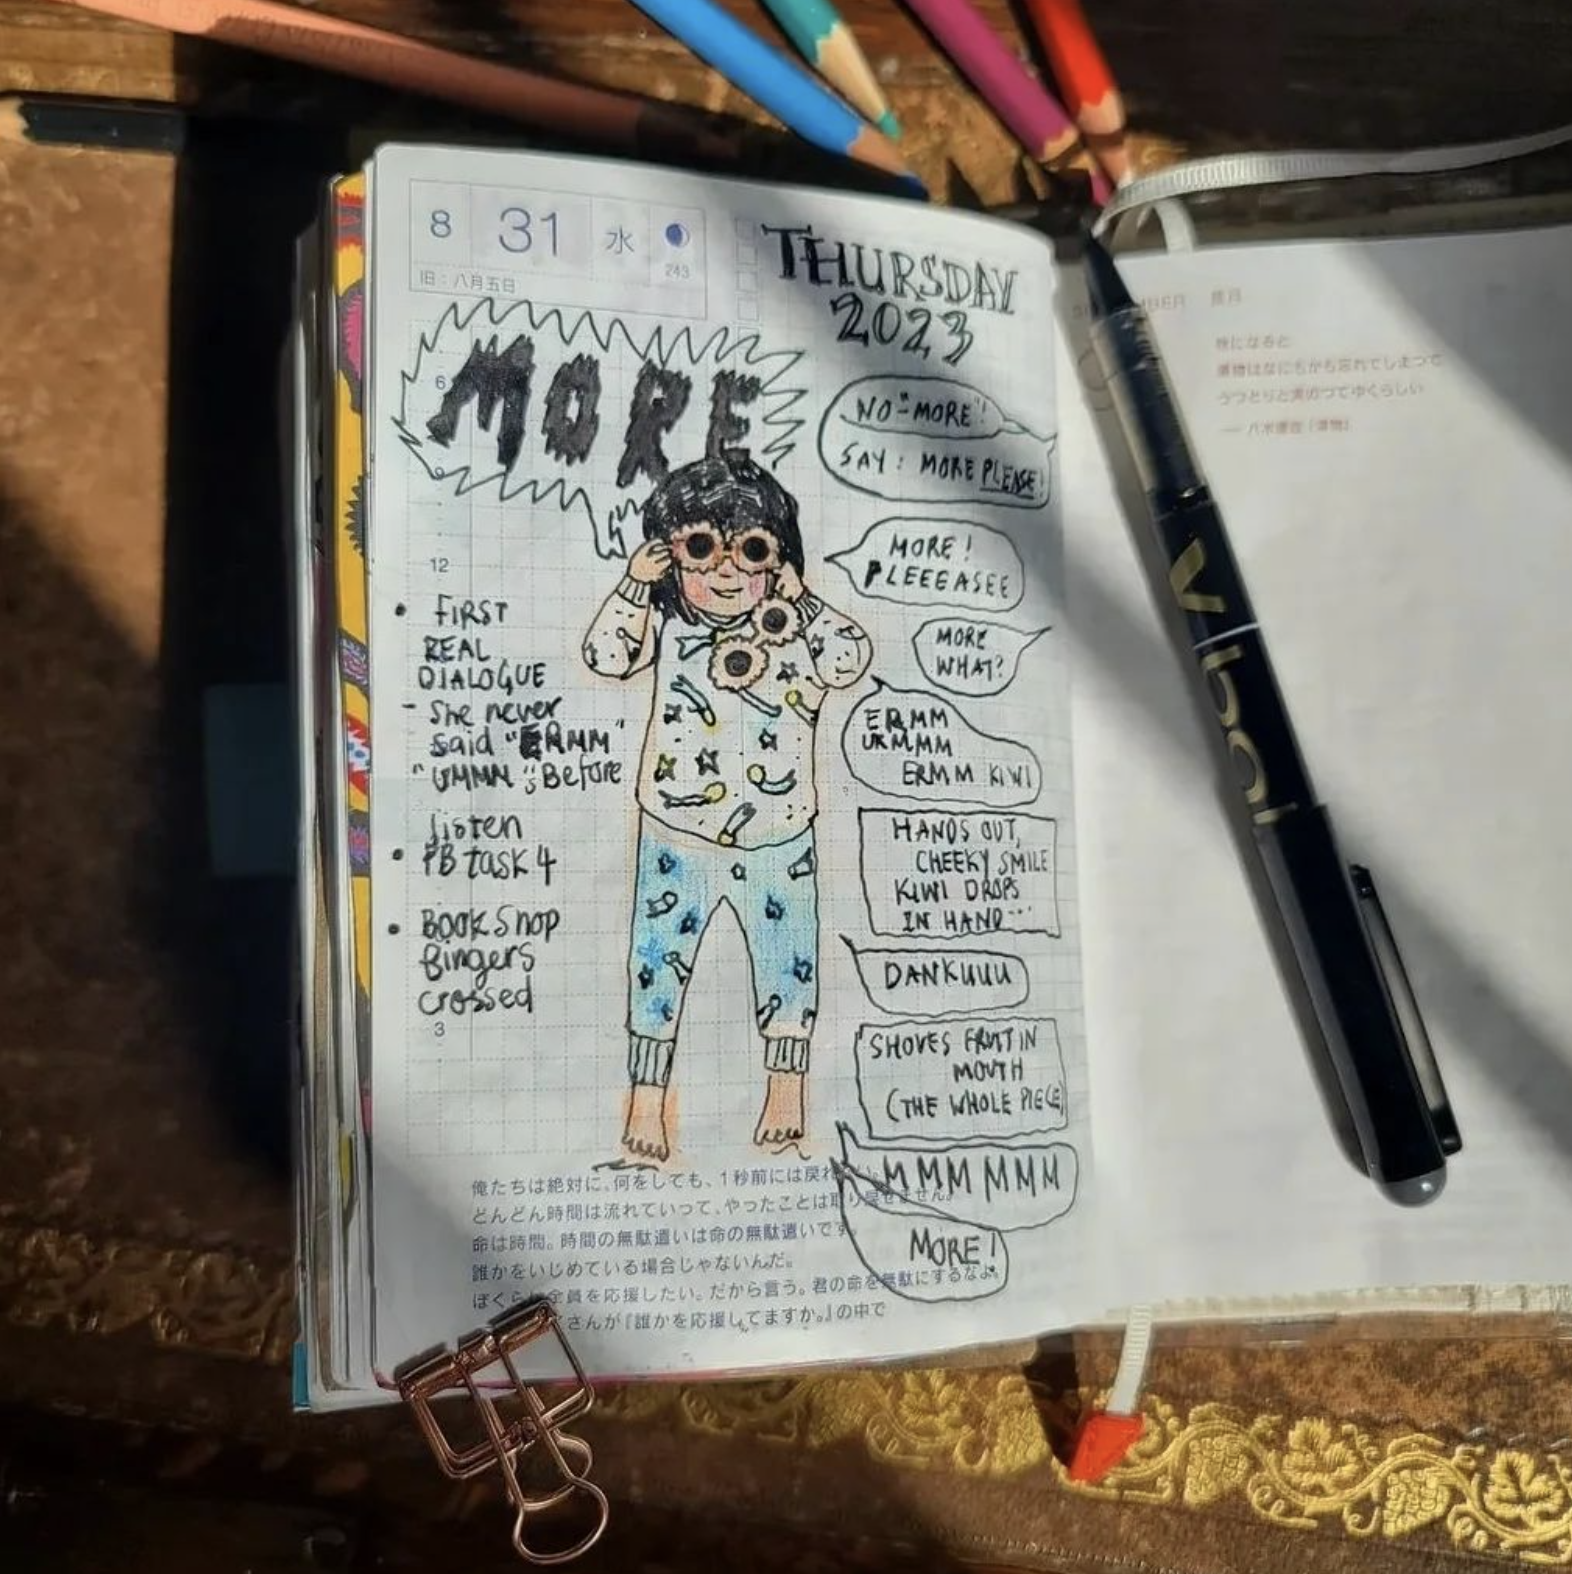 8 31 水
243
旧：八月五日
THURSDAY
2023
MORE
NO "MORE"!
SAY: MORE PLEASE!
MORE!
PLEEEASEE
MORE
WHAT?
ERMM
UKMMM
ERMM KIWI
HANDS OUT,
CHEEKY SMILE
KIWI DROPS
IN HAND...
DANKUUU
SHOVES FRUIT IN
MOUTH
(THE WHOLE PIECE)
MMM MMM
MORE!
6
9
12
• FIRST
REAL
DIALOGUE
- She never
said "ERMM"
"UMMM"; Before
listen
• PB task 4
• BOOK Shop
fingers
crossed
3
俺たちは絶対に、何をしても、1秒前には戻れ
どんどん時間は流れていって、やったことは取り戻せません。
命は時間。時間の無駄遣いは命の無駄遣いです。
誰かをいじめている場合じゃないんだ。
ぼくらは全員を応援したい。だから言う。君の命を無駄にするなよ。
さんが『誰かを応援してますか。』の中で
秋になると
果物はなにもかも忘れてしまつて
うつとりと実のつてゆくらしい
── 八木重吉「果物」
Vball